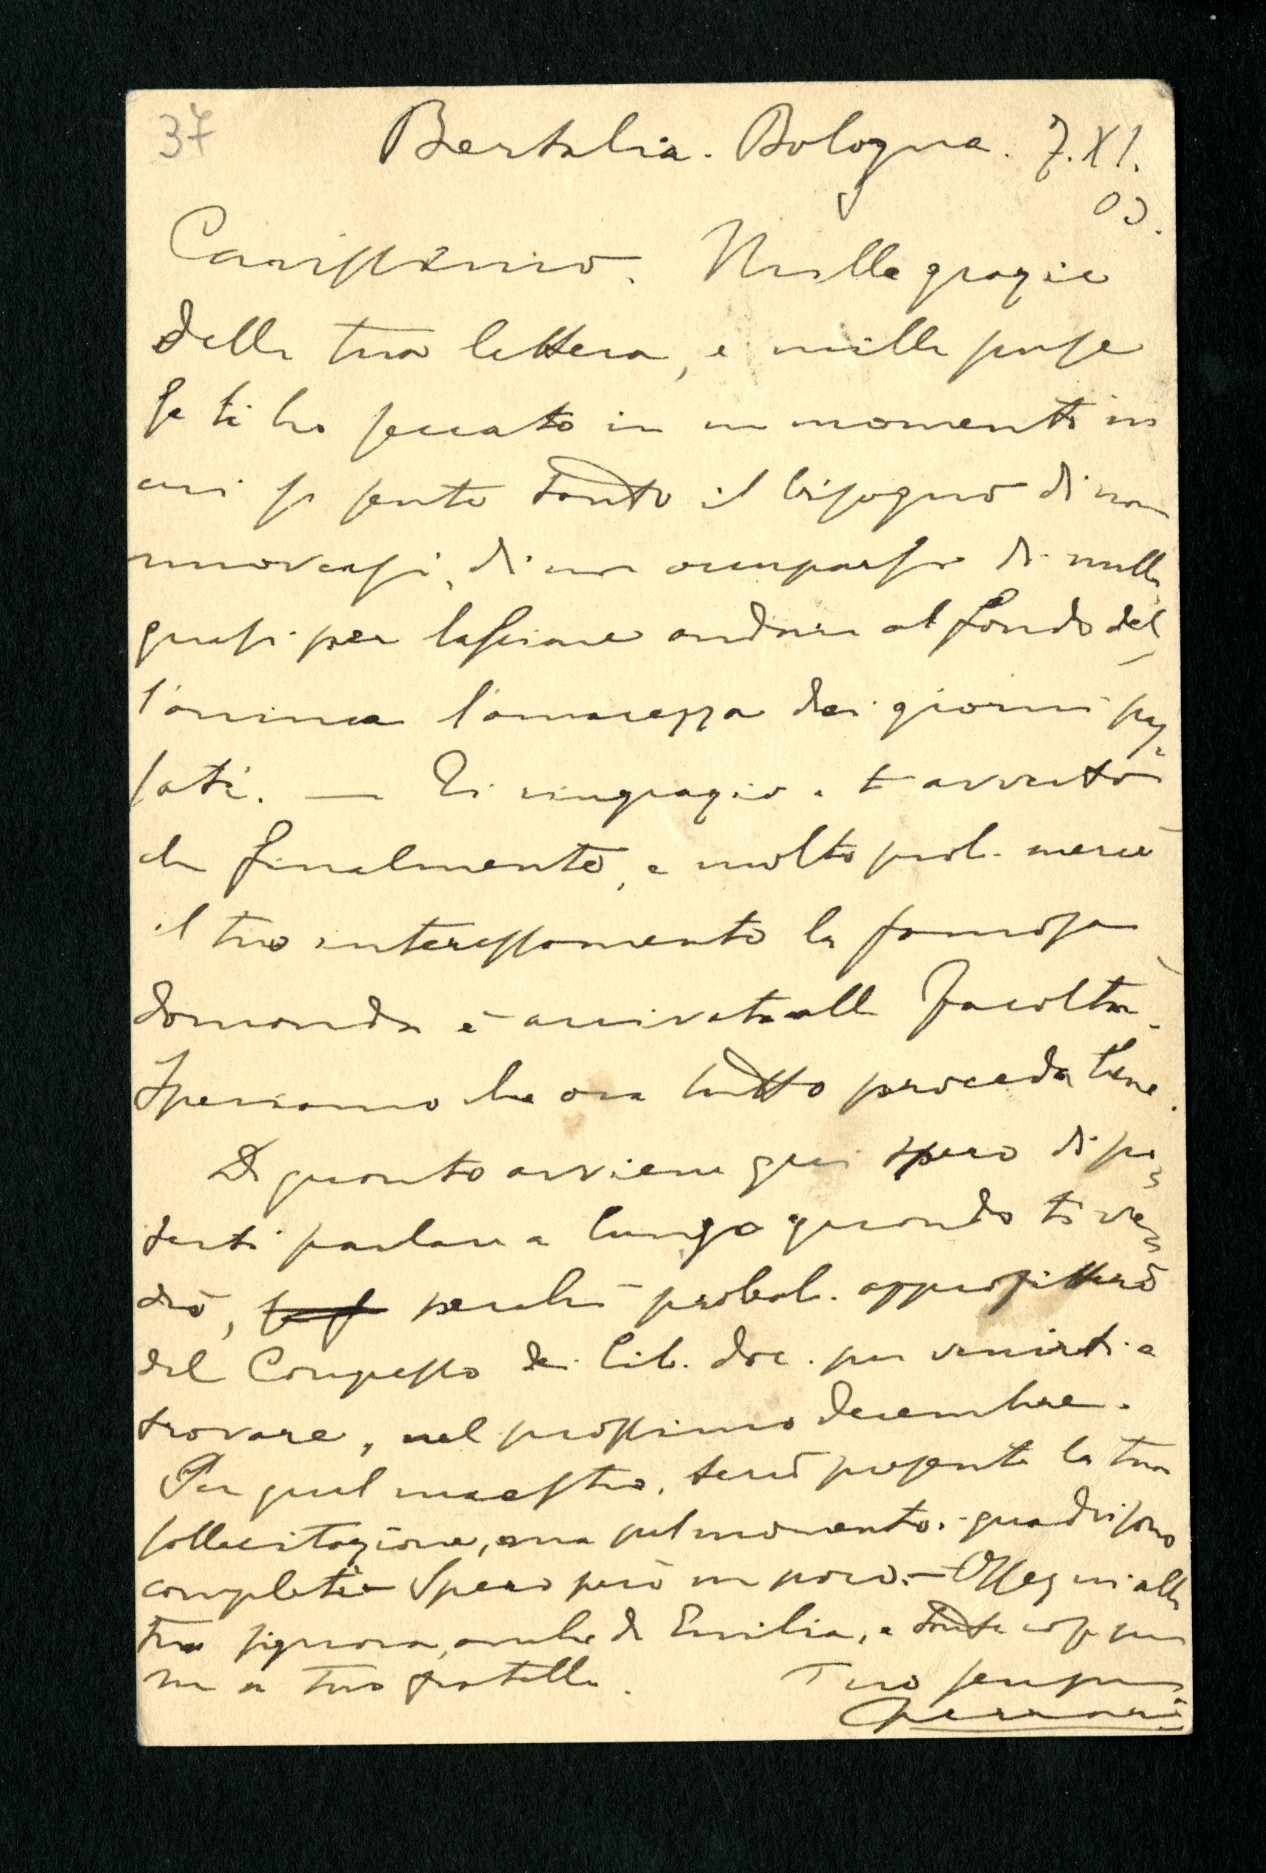 37
Bertalia. Bologna. 7.XI.
03.
Carissimo. Mille grazie
della tua lettera, e mille scuse
se ti ho seccato in un momento in
cui si sente tanto il bisogno di non
muoversi, di non occuparsi di nulla
quasi per lasciare andare al fondo del
l'anima l'amarezza dei giorni pas
sati. — Ti ringrazio e t'avverto
che finalmente, e molto prob. mercè
il tuo interessamento la famosa
domanda è arrivata alla Facoltà.
Speriamo che ora tutto proceda bene.
Di quanto avviene qui spero di po=
terti parlare a lungo quando ti ve=
drò, perchè probab. approfitterò
del Congresso dei lib. doc. per venirti a
trovare, nel prossimo decembre.
Per quel maestro, terrò presente la tua
sollecitazione, ma pel momento i quadri sono
completi — Spero però un poco. — Ossequi alla
tua signora, anche da Emilia, e tante cose per
me a tuo fratello. Tuo sempre